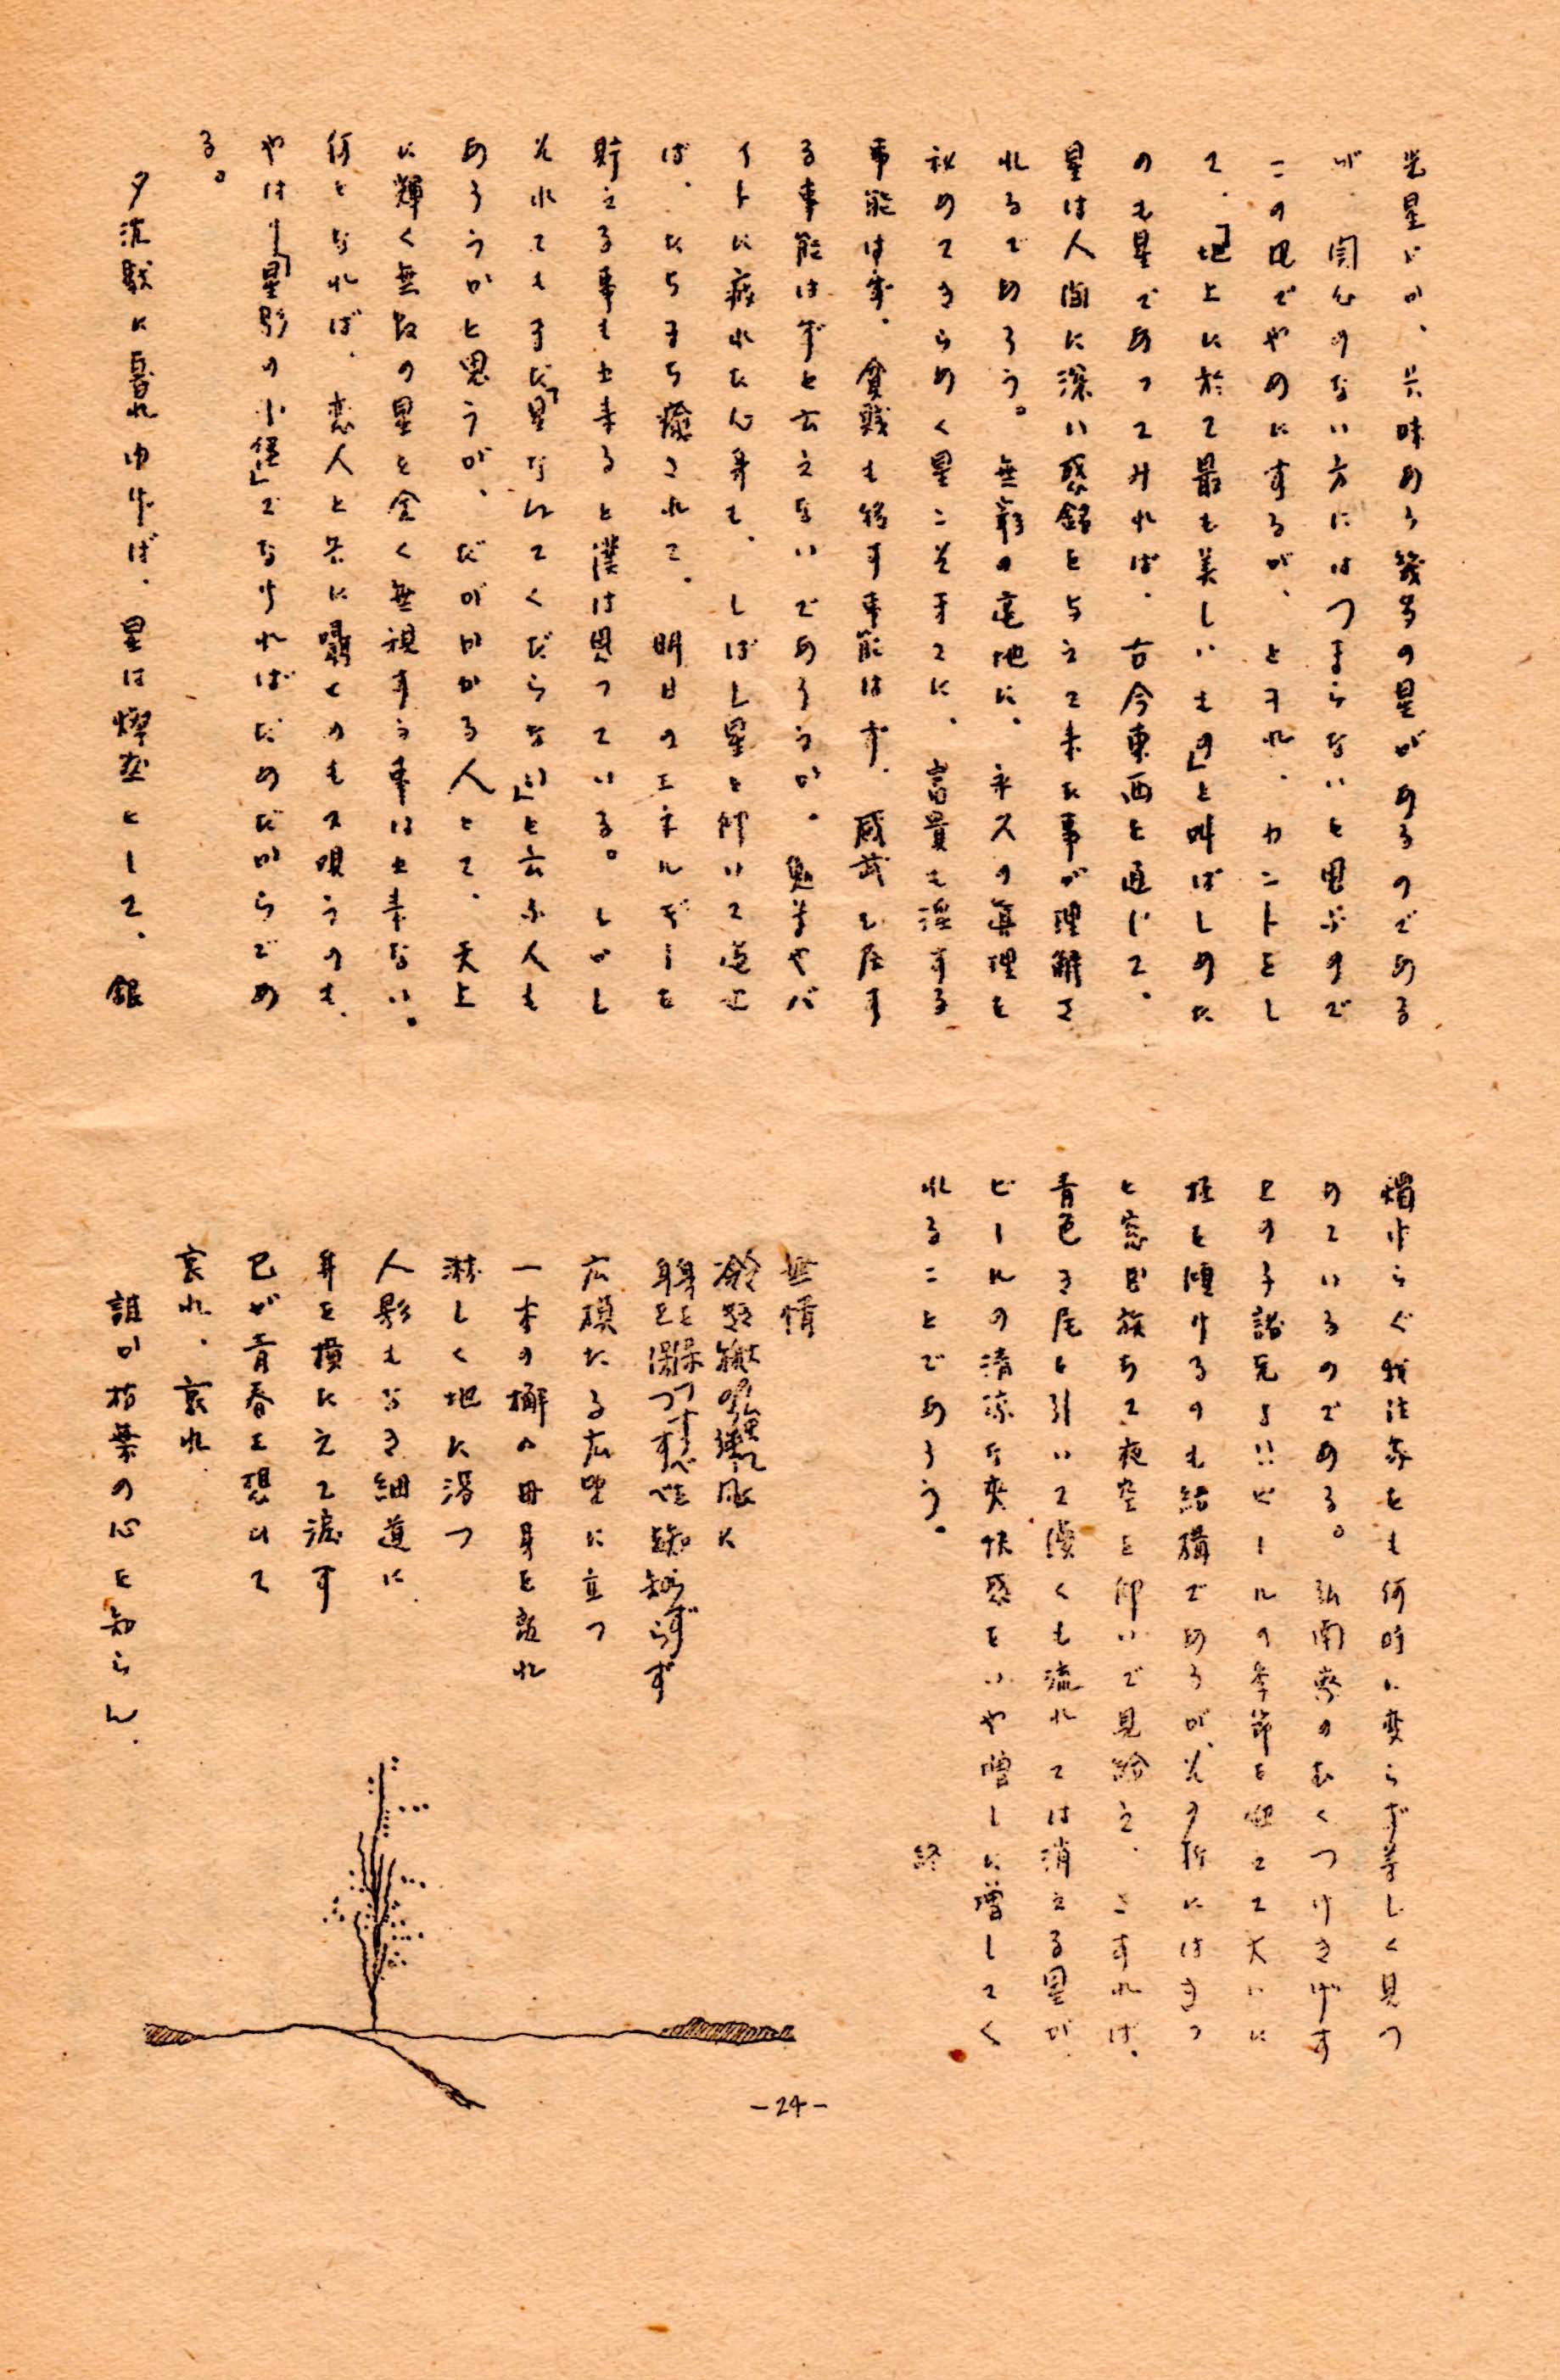 光星とか、興味ある幾多の星があるのである
が、関心のない方にはつまらないと思ふので
この辺でやめにするが、とまれ、カントをし
て、「地上に於て最も美しいもの」と叫ばしめた
のも星であってみれば、古今東西を通じて、
星は人間に深い感銘を与えて来た事が理解さ
れるであろう。無窮の宅地に、永久の真理を
秘めてきらめく星こそまことに、富貴も淫する
事能はず、貧賤も移す事能はず、威武も屈す
る事能はずと云えないであろうか。勉学やバ
イトに疲れた心身も、しばし星を仰いで過せ
ば、たちまち癒されて、明日のエネルギーを
貯える事も出来ると僕は思っている。しかし
それでもまだ「星なんてくだらない」と云ふ人も
あろうかと思うが、だがかかる人とて、天上
に輝く無数の星を全く無視する事は出来ない。
何となれば、恋人と共に囁くのも又唄うのも、
やはり「星影の小径」でなければだめだからであ
る。
夕沈黙に暮れゆけば、星は燦然として、銀
瞬やらぐ我注家をも何時に変らず美しく見つ
めているのである。弘南寮のむくつけきげす
どの子諸兄よ!!ビールの季節を迎えて大いに
杯を傾けるのも結構であるが、その折にはきっ
と窓辺族ちて夜空を仰いで見給え、さすれば、
青色き尾を引いて儚くも流れては消える星が、
ビールの清涼な爽快感をいや増しに増してく
れることであろう。
終
無情
身を保つすべを知らず
広漠たる広野に立つ
一本の樹の母身を離れ
淋しく地に落つ
人影もなき細道に
身を横たえて涙す
己が青春を想ひて
哀れ、哀れ、
誰か枯葉の心を知らん、
-24-